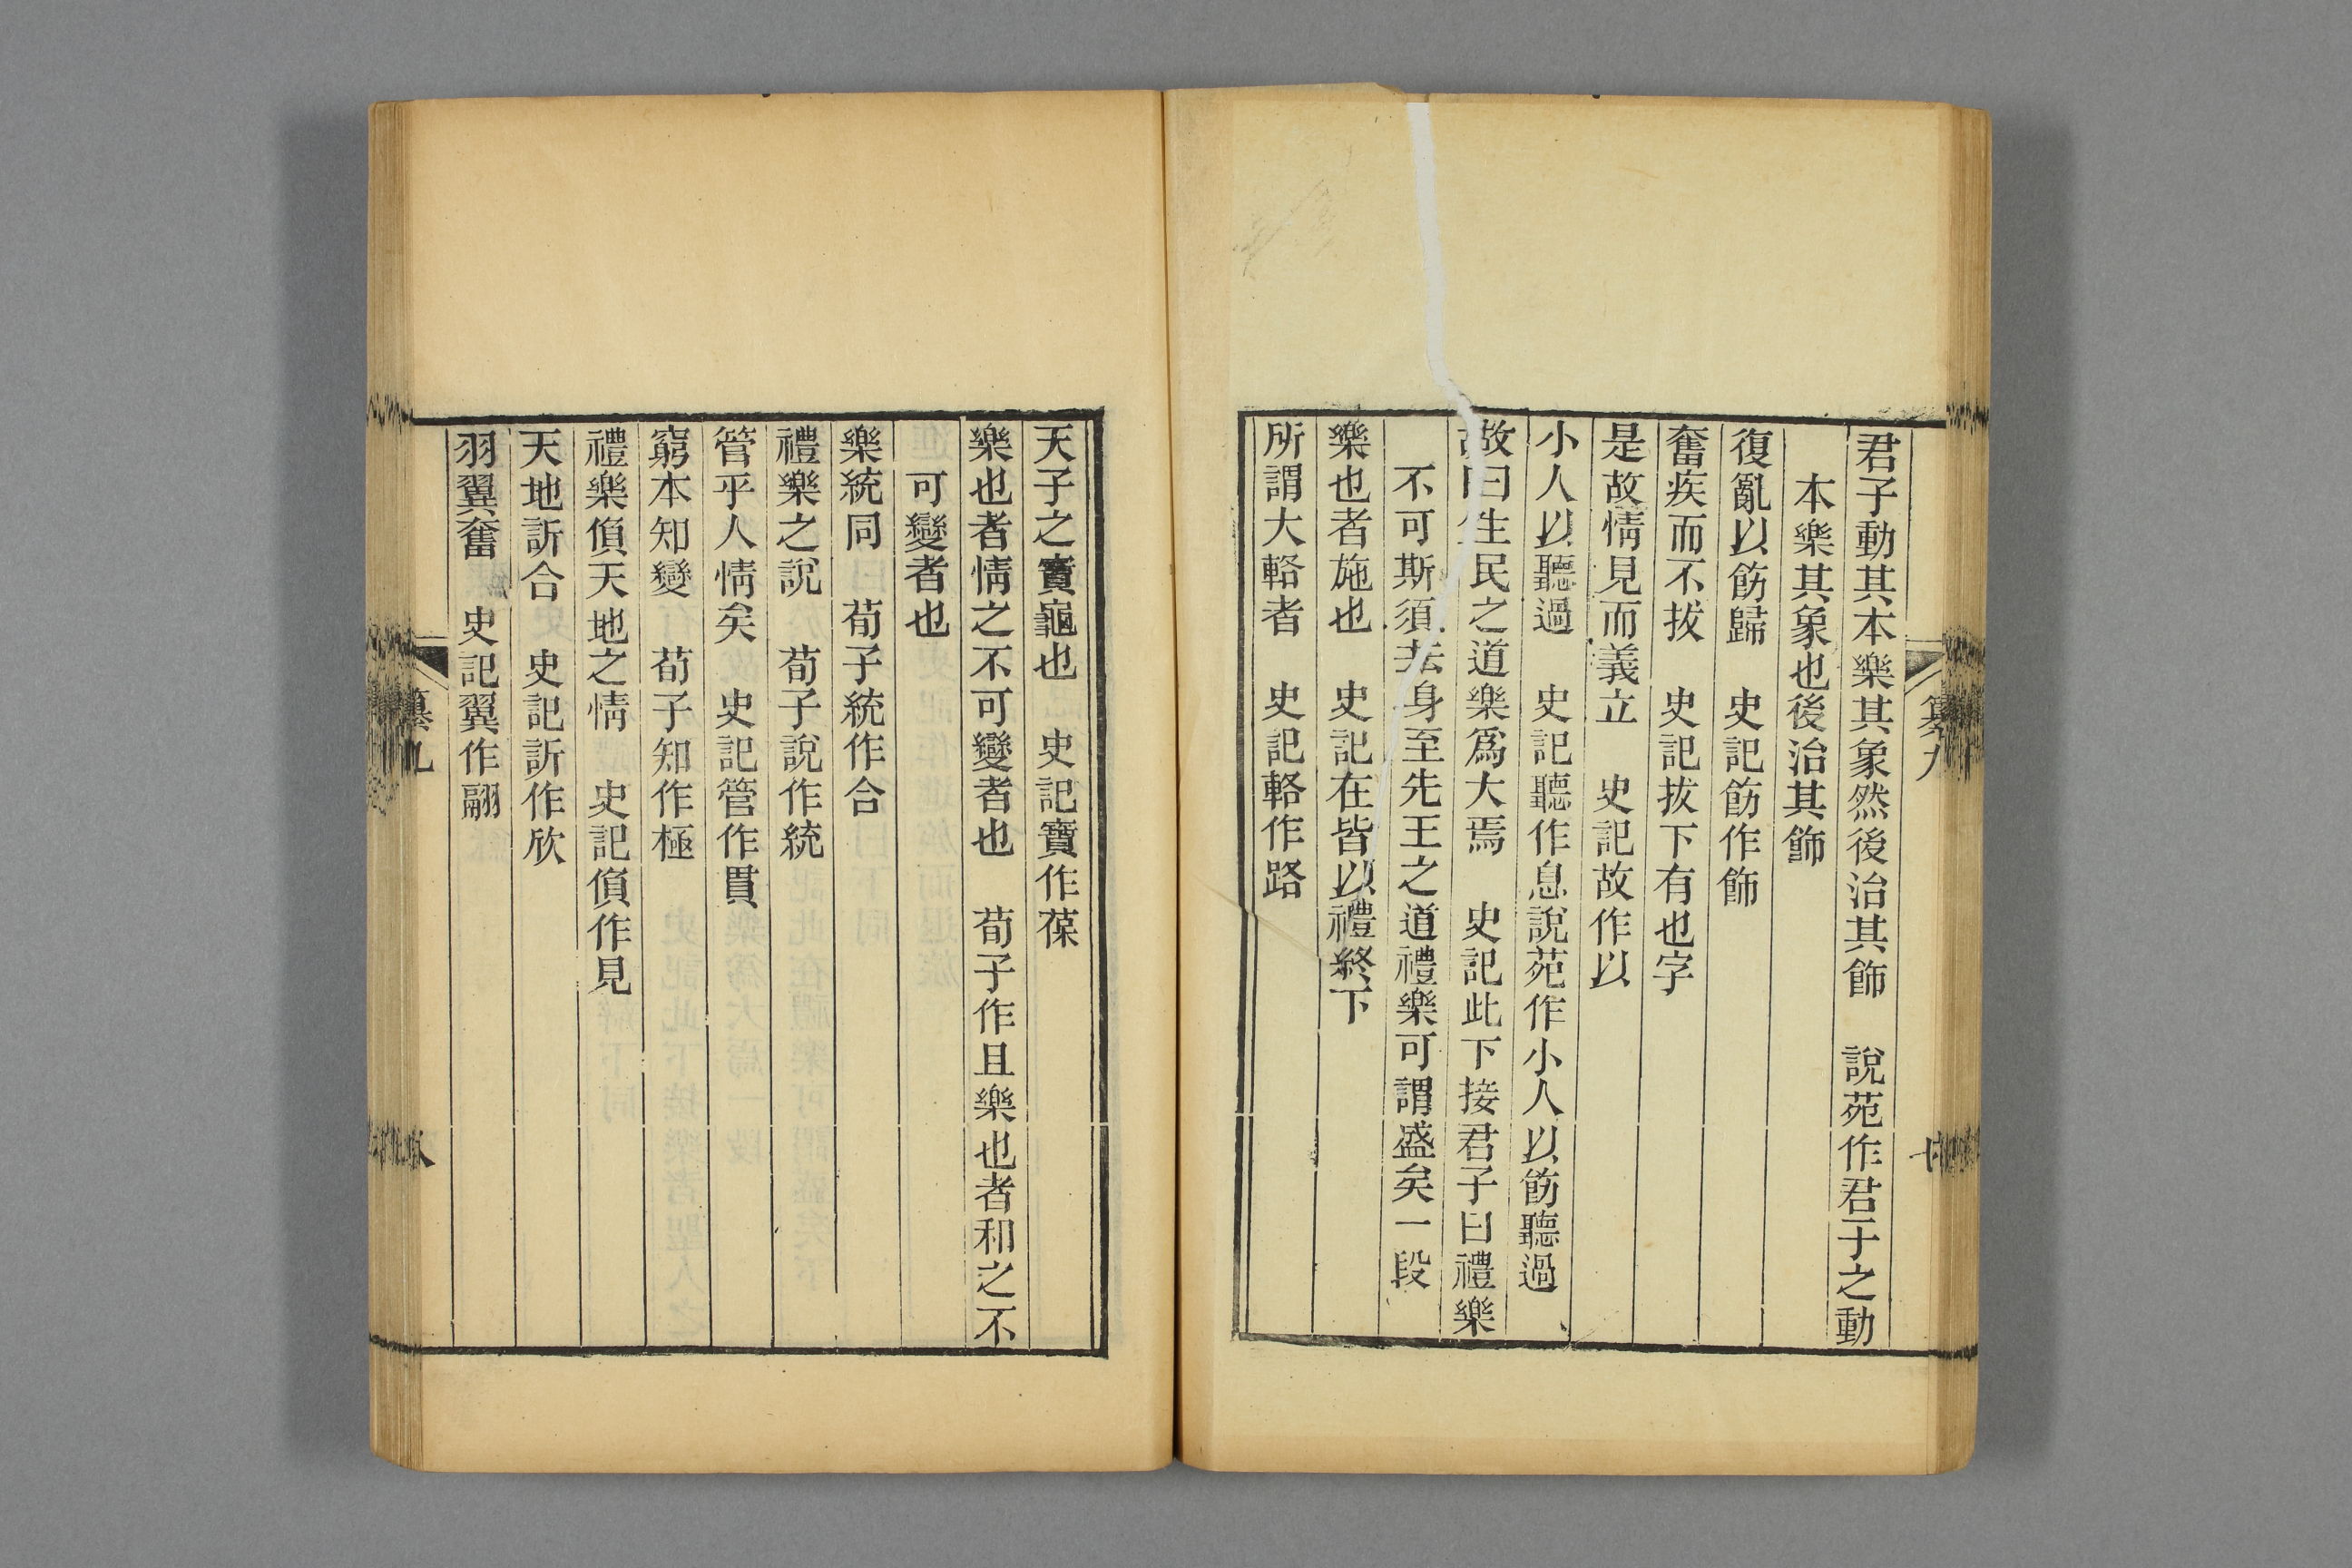 君子動其本樂其象然後治其飾　說苑作君子之動
本樂其象也後治其飾
復亂以飭歸　史記飭作飾
奮疾而不拔　史記拔下有也字
是故情見而義立　史記故作以
小人以聽過　史記聽作息說苑作小人以飭聽過
故曰生民之道樂爲大焉　史記此下接君子曰禮樂
不可斯須去身至先王之道禮樂可謂盛矣一段
樂也者施也　史記在皆以禮終下
所謂大輅者　史記輅作路
天子之寶龜也　史記寶作葆
樂也者情之不可變者也　荀子作且樂也者和之不
可變者也
樂統同　荀子統作合
禮樂之說　荀子說作統
管乎人情矣　史記管作貫
窮本知變　荀子知作極
禮樂偩天地之情　史記偩作見
天地訢合　史記訢作欣
羽翼奮　史記翼作翮
纂九